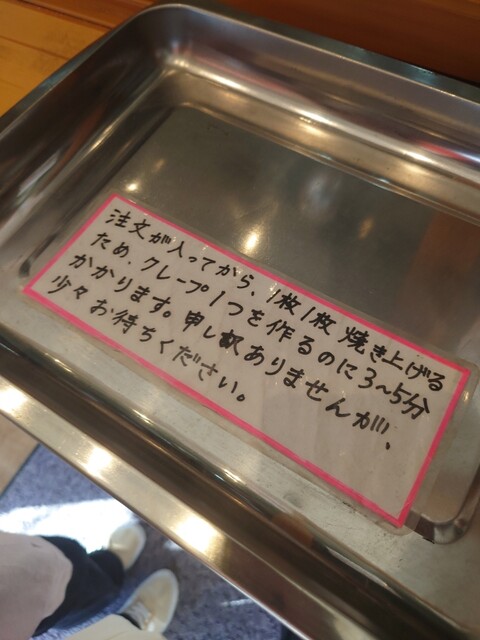 注文が入ってから、1枚1枚 焼き上げる
ため、クレープ1つを作るのに3〜5分
かかります。申し訳ありませんが、
少々お待ちください。